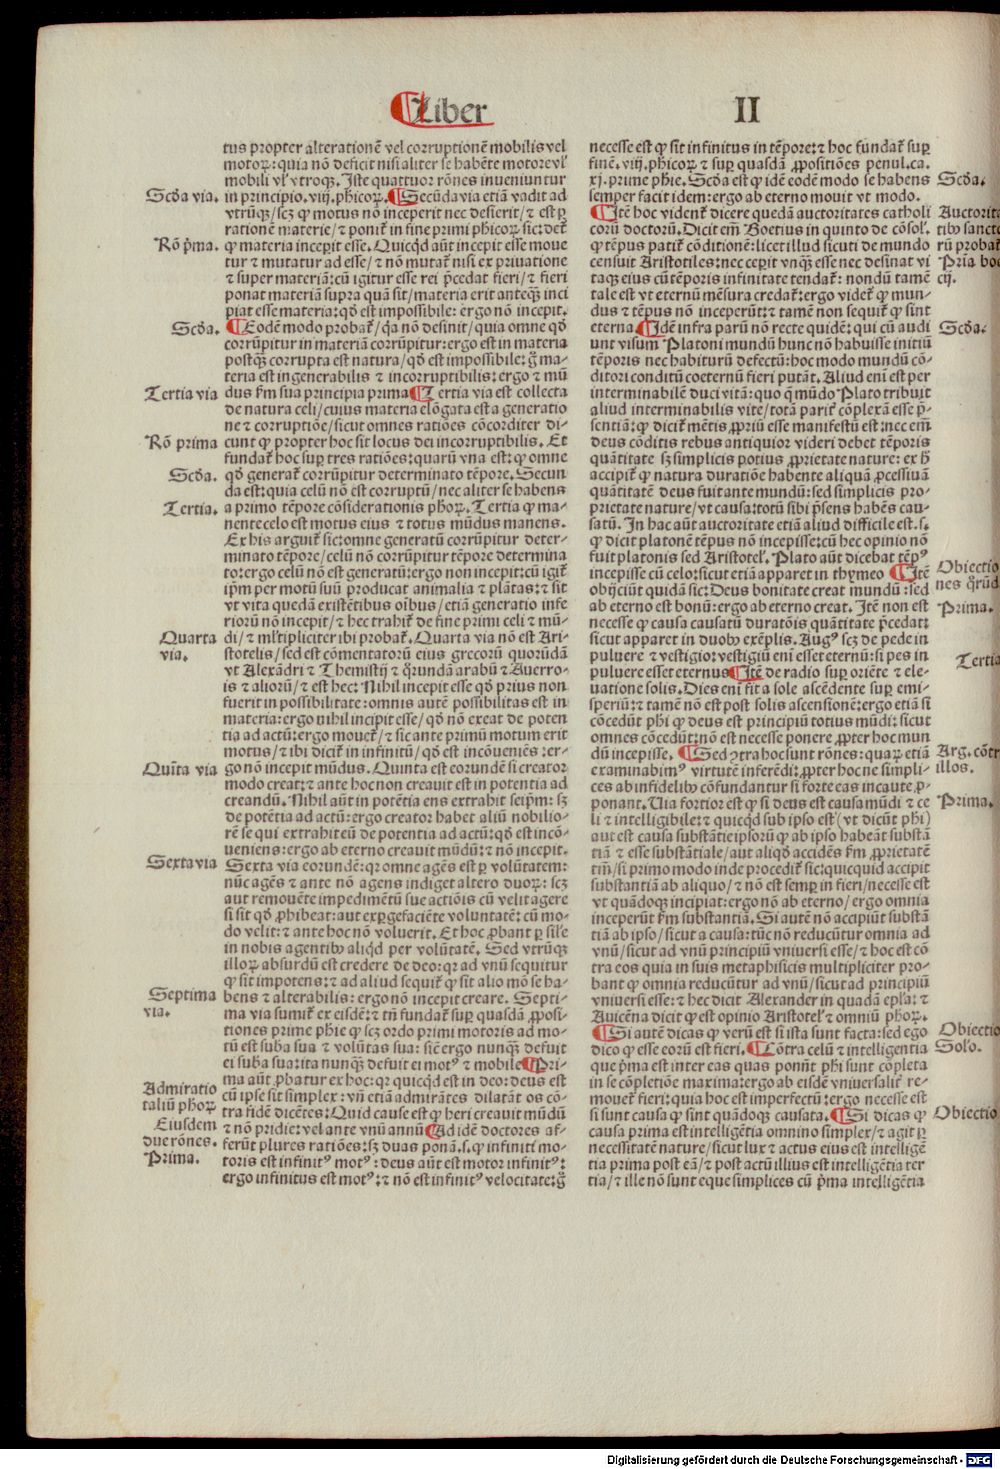 Liber
II
tus propter alterationē vel corruptionē mobilis vel
motoꝝ: quia nō deficit nisi aliter se habēte motore vl'
mobili vl' vtroqꝫ. Iste quattuor rōnes inueniuntur
Scd̄a via.
in principio .viij. phicoꝝ. ¶Secūda via etiā vadit ad
vtrūqꝫ/scꝫ ꝙ motus nō inceperit nec desierit/⁊ est ꝑ
rationē materie/⁊ ponit̄ in fine primi phicoꝝ sic: det̄
Rō pͥma.
ꝙ materia incepit esse. Quicqd̄ aūt incepit esse moue
tur ⁊ mutatur ad esse/⁊ nō mutat̄ nisi ex priuatione
⁊ super materiā: cū igitur esse rei p̄cedat fieri/⁊ fieri
ponat materiā supra quā sit/materia erit anteqꝫ inci
piat esse materia: qd̄ est impossibile: ergo nō incepit.
Scd̄a.
¶Eodē modo probat̄/qa nō desinit/quia omne qd̄
corrūpitur in materiā corrūpitur: ergo est in materia
postqꝫ corrupta est natura/qd̄ est impossibile: gͦ ma-
teria est ingenerabilis ⁊ incorruptibilis: ergo ⁊ mū
Tertia via
dus fm sua principia prima ¶Tertia via est collecta
de natura celi/cuius materia elōgata est a generatio
ne ⁊ corruptiōe/sicut omnes ratiōes cōcorditer di-
Rō prima
cunt ꝙ propter hoc sit locus dei incorruptibilis. Et
fundat̄ hoc suꝑ tres ratiōes: quarū vna est: ꝙ omne
Scd̄a.
qd̄ generat̄ corrūpitur determinato tēpore. Secun
da est: quia celū nō est corruptū/nec aliter se habens
Tertia.
a primo tēpore cōsiderationis phoꝝ. Tertia ꝙ ma-
nente celo est motus eius ⁊ totus mūdus manens.
Ex his arguit̄ sic: omne generatū corrūpitur deter-
minato tēpore/celū nō corrūpitur tēpore determina
to: ergo celū nō est generatū: ergo non incepit: cū igit̄
ip̄m per motū suū producat animalia ⁊ plātas: ⁊ sit
vt vita quedā existētibus oībus/etiā generatio infe
riorū nō incepit/⁊ hec trahit̄ de fine primi celi ⁊ mū-
Quarta
via.
di/⁊ ml'tipliciter ibi probat̄. Quarta via nō est Ari-
stotelis/sed est cōmentatorū eius grecorū quorūdā
vt Alexādri ⁊ Themistij ⁊ qrūdā arabū ⁊ Auerro-
is ⁊ aliorū/⁊ est hec: Nihil incepit esse qd̄ prius non
fuerit in possibilitate: omnis autē possibilitas est in
materia: ergo nihil incipit esse/qd̄ nō exeat de poten
tia ad actū: ergo mouet̄/⁊ sic ante primū motum erit
motus/⁊ ibi dicit̄ in infinitū/qd̄ est incōueniēs: er-
Quīta via
go nō incepit mūdus. Quinta est eorundē si creator
modo creat: ⁊ ante hoc non creauit est in potentia ad
creandū. Nihil aūt in potētia ens extrahit seip̄m: sꝫ
de potētia ad actū: ergo creator habet aliū nobilio-
rē se qui extrahit eū de potentia ad actū: qd̄ est incō-
ueniens: ergo ab eterno creauit mūdū: ⁊ nō incepit.
Sexta via
Sexta via eorundē: qꝛ omne agēs est ꝑ volūtatem:
nūc agēs ⁊ ante nō agens indiget altero duoꝝ: scꝫ
aut remouēte impedimētū sue actiōis cū velit agere
si sit qd̄ ꝓhibeat: aut exꝑgefaciēte voluntatē: cū mo-
do velit: ⁊ ante hoc nō voluerit. Et hoc ꝓbant ꝑ sil'e
in nobis agentibꝰ aliqd̄ per volūtatē. Sed vtrūqꝫ
illoꝝ absurdū est credere de deo: qꝛ ad vnū sequitur
ꝙ sit impotens: ⁊ ad aliud sequit̄ ꝙ sit alio mō se ha-
Septima
via.
bens ⁊ alterabilis: ergo nō incepit creare. Septi-
ma via sumit̄ ex eisdē: ⁊ tn̄ fundat̄ suꝑ quasdā ꝓposi-
tiones prime phie ꝙ scꝫ ordo primi motoris ad mo-
tū est suba sua ⁊ volūtas sua: sic̄ ergo nunqꝫ defuit
ei suba sua: ita nunqꝫ defuit ei motꝰ ⁊ mobile ¶Pri-
Admiratio
taliū phoꝝ
ma aūt ꝓbatur ex hoc: qꝛ quicqd̄ est in deo: deus est
cū ipse sit simplex: vn̄ etiā admirātes dilatāt os cō-
tra fidē dicētes: Quid cause est ꝙ heri creauit mūdū
Eiusdem
due rōnes.
⁊ nō pridie: vel ante vnū annū ¶Ad idē doctores af-
ferūt plures ratiōes: sꝫ duas ponā .s. ꝙ infiniti mo-
Prima.
toris est infinitꝰ motꝰ: deus aūt est motor infinitꝰ:
ergo infinitus est motꝰ: ⁊ nō est infinitꝰ velocitate: gͦ
necesse est ꝙ sit infinitus in tēpore: ⁊ hoc fundat̄ suꝑ
finē .viij. phicoꝝ ⁊ suꝑ quasdā ꝓpositiōes penul. ca.
Scd̄a.
xj. prime phie. Scd̄a est ꝙ idē eodē modo se habens
semper facit idem: ergo ab eterno mouit vt modo.
Auctorita
tibꝰ sancto
rū probat̄
Pria boe
cij.
¶Itē hoc vident̄ dicere quedā auctoritates catholi
corū doctorū. Dicit em̄ Boetius in quinto de cōsol'.
ꝙ tēpus patit̄ cōditionē: licet illud sicuti de mundo
censuit Aristotiles: nec cepit vnqꝫ esse nec desinat vi
taqꝫ eius cū tēporis infinitate tendat̄: nondū tamē
tale est vt eternū mēsura credat̄: ergo videt̄ ꝙ mun-
dus ⁊ tēpus nō inceperūt: ⁊ tamē non sequit̄ ꝙ sint
Scd̄a.
eterna. ¶Idē infra parū nō recte quidē: qui cū audi
unt visum Platoni mundū hunc nō habuisse initiū
tēporis nec habiturū defectū: hoc modo mundū cō-
ditori conditū coeternū fieri putāt. Aliud eni est per
interminabilē duci vitā: quo qͥ mūdo Plato tribuit
aliud interminabilis vite/totā parit̄ cōplexā esse p̄-
sentiā: ꝙ dicit̄ mētis ꝓpriū esse manifestū est: nec em̄
deus cōditis rebus antiquior videri debet tēporis
quātitate sꝫ simplicis potius ꝓprietate nature: ex h̄
accipit̄ ꝙ natura duratiōe habente aliquā ꝓcessiuā
quātitatē deus fuit ante mundū: sed simplicis pro-
prietate nature/vt causa: totū sibi p̄sens habēs cau-
satū. In hac aūt auctoritate etiā aliud difficile est .s.
ꝙ dicit platonē tēpus nō incepisse: cū hec opinio nō
fuit platonis sed Aristotel'. Plato aūt dicebat tēpꝰ
Obiectio
nes qrūd
incepisse cū celo: sicut etiā apparet in thymeo ¶Itē
obijciūt quidā sic: Deus bonitate creat mundū: sed
Prima.
ab eterno est bonū: ergo ab eterno creat. Itē non est
necesse ꝙ causa causatū duratōis quātitate p̄cedat:
sicut apparet in duobꝰ exēplis. Augꝰ scꝫ de pede in
puluere ⁊ vestigio: vestigiū eni esset eternū: si pes in
Tertia
puluere esset eternus ¶Itē de radio suꝑ oriēte ⁊ ele-
uatione solis. Dies eni fit a sole ascēdente suꝑ emi-
speriū: ⁊ tamē nō est post solis ascensionē: ergo etiā si
cōcedūt phi ꝙ deus est principiū totius mūdi: sicut
omnes cōcedūt: nō est necesse ponere ꝓpter hoc mun
Arg. cōtr
illos.
dū incepisse. ¶Sed ↄtra hoc sunt rōnes: quaꝝ etiā
examinabimꝰ virtutē inferēdi: ꝓpter hoc ne simpli-
ces ab infidelibꝰ cōfundantur si forte eas incaute ꝓ-
Prima.
ponant. Uia fortior est ꝙ si deus est causa mūdi ⁊ ce
li ⁊ intelligibile: ⁊ quicqd̄ sub ipso est (vt dicūt phi)
aut est causa substātie ipsorū ꝙ ab ipso habeāt substā
tiā ⁊ esse substātiale/aut aliqd̄ accidēs fm ꝓprietatē
tm̄/si primo modo inde procedit̄ sic: quicquid accipit
substantiā ab aliquo/⁊ nō est semꝑ in fieri/necesse est
vt quādoqꝫ incipiat: ergo nō ab eterno/ergo omnia
inceperūt fm substantiā. Si autē nō accipiūt substā
tiā ab ipso/sicut a causa: tūc nō reducūtur omnia ad
vnū/sicut ad vnū principiū vniuersi esse/⁊ hoc est cō
tra eos quia in suis metaphisicis multipliciter pro-
bant ꝙ omnia reducūtur ad vnū/sicut ad principiū
vniuersi esse: ⁊ hec dicit Alexander in quadā epl'a: ⁊
Auicēna dicit ꝙ est opinio Aristotel' ⁊ omniū phoꝝ.
Obiectio
¶Si autē dicas ꝙ verū est si ista sunt facta: sed ego
Solo.
dico ꝙ esse eorū est fieri. ¶Cōtra celū ⁊ intelligentia
que p̄ma est inter eas quas ponūt phi sunt cōpleta
in se cōpletiōe maxima: ergo ab eisdē vniuersalit̄ re-
mouet̄ fieri: quia hoc est imperfectū: ergo necesse est
Obiectio
si sunt causa ꝙ sint quādoqꝫ causata. ¶Si dicas ꝙ
causa prima est intelligētia omnino simplex/⁊ agit ꝑ
necessitatē nature/sicut lux ⁊ actus eius est intelligē
tia prima post eā/⁊ post actū illius est intelligētia ter
tia/⁊ ille nō sunt eque simplices cū p̄ma intelligētia
Digitalisierung gefördert durch die Deutsche Forschungsgemeinschaft - DFG